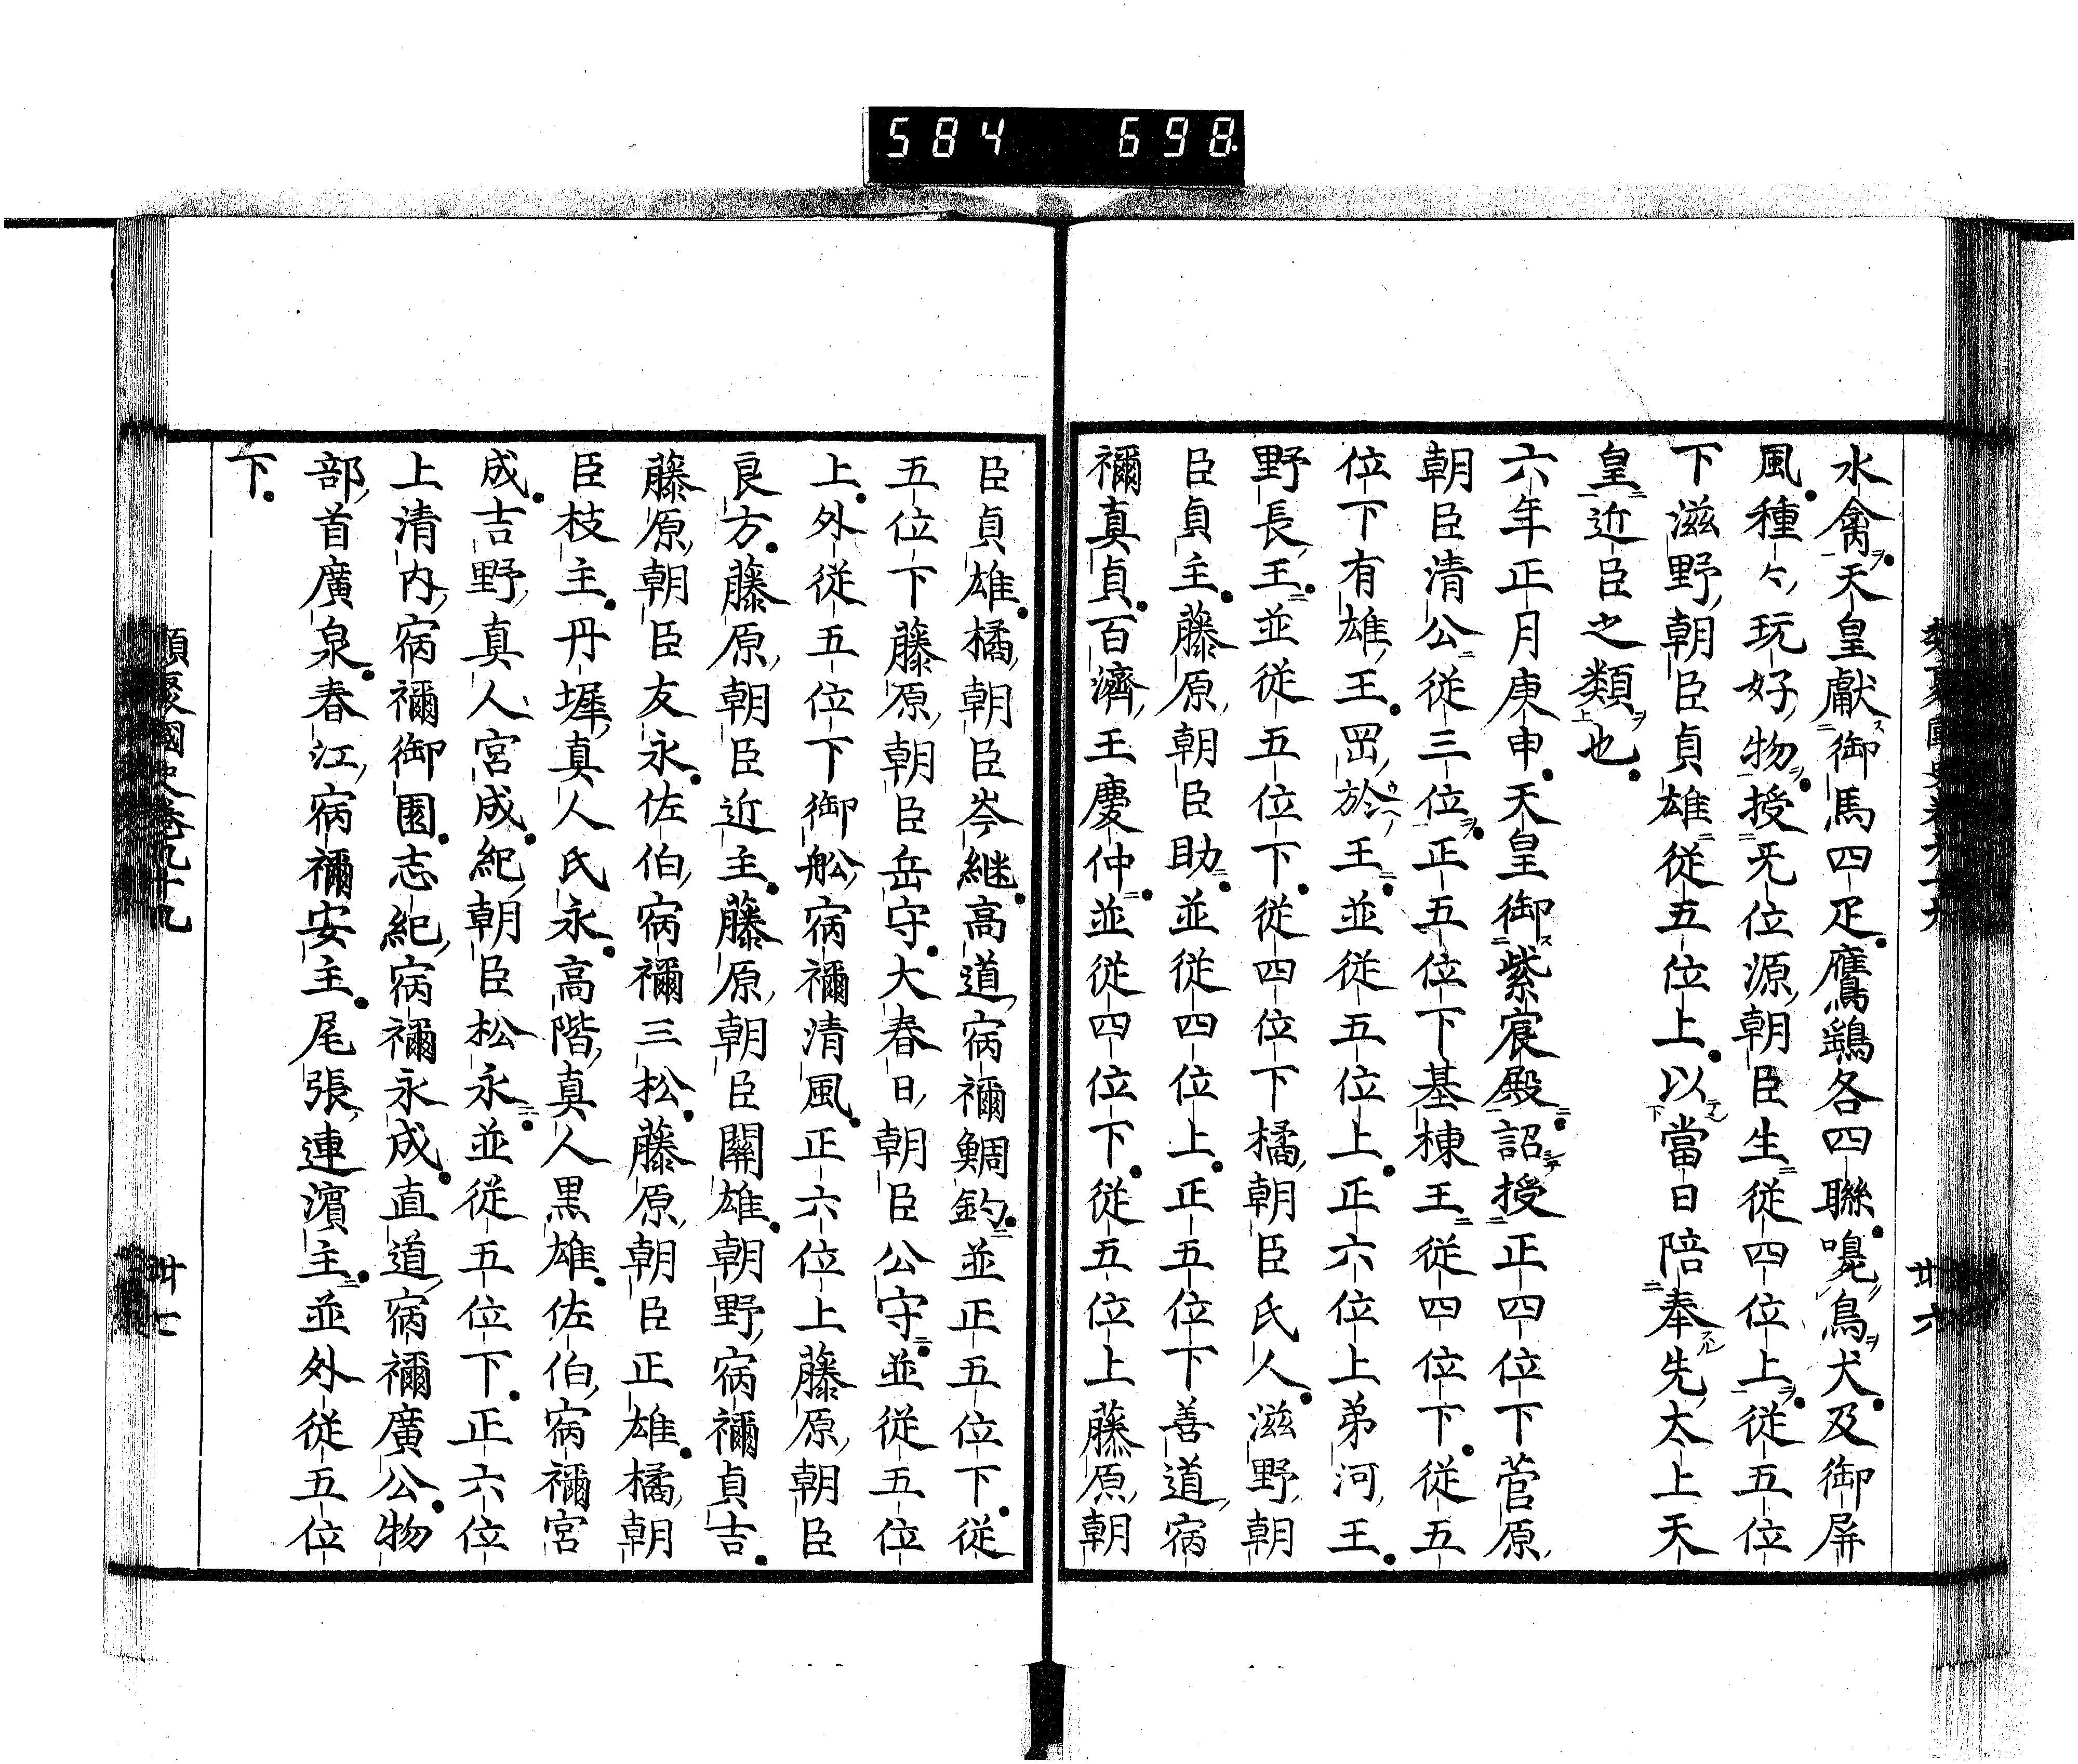 584 698
水禽天皇獻御馬四疋鷹鷂各四聯嗅鳥犬及御屏
風種々玩好物授无位源朝臣生從四位上從五位
下滋野朝臣貞雄從五位上以當日陪奉先太上天
皇近臣之類也
六年正月庚申天皇御紫宸殿詔授正四位下菅原
朝臣清公從三位正五位下基棟王從四位下從五
位下有雄王岡於王並從五位上正六位上弟河王
野長王並從五位下從四位下橘朝臣氏人滋野朝
臣貞主藤原朝臣助並從四位上正五位下善道宿
禰真貞百濟王慶仲並從四位下從五位上藤原朝
臣貞雄橘朝臣岑継高道宿禰鯛釣並正五位下從
五位下藤原朝臣岳守大春日朝臣公守並從五位
上外從五位下御舩宿禰清風正六位上藤原朝臣
良方藤原朝臣近主藤原朝臣關雄朝野宿禰貞吉
藤原朝臣友永佐伯宿禰三松藤原朝臣正雄橘朝
臣枝主丹墀真人氏永高階真人黒雄佐伯宿禰宮
成吉野真人宮成紀朝臣松永並從五位下正六位
上清内宿禰御園志紀宿禰永成直道宿禰廣公物
部首廣泉春江宿禰安主尾張連濱主並外從五位
下
類聚國史卷九十九 卅七